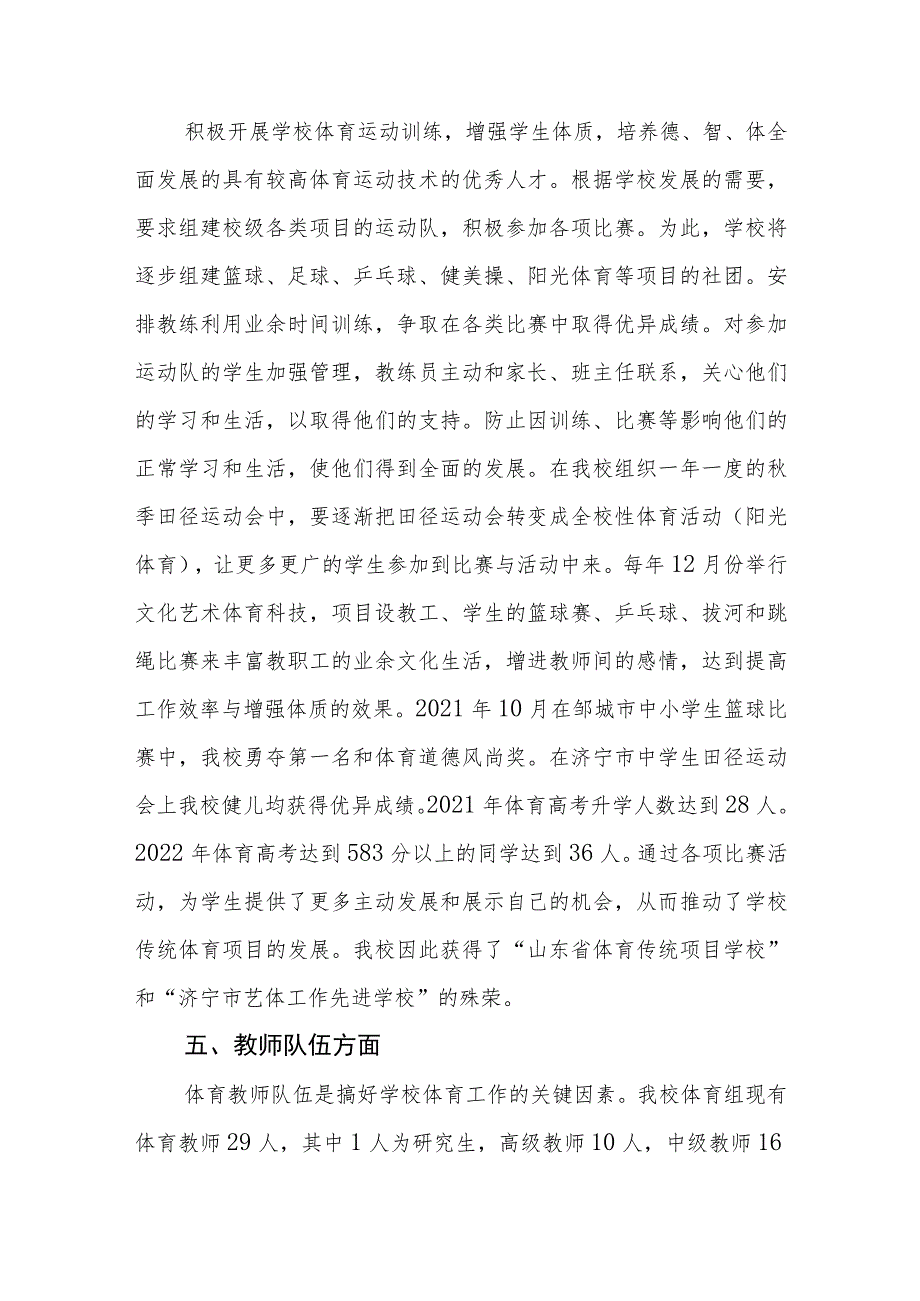 积极开展学校体育运动训练，增强学生体质，培养德、智、体全
面发展的具有较高体育运动技术的优秀人才。根据学校发展的需要，
要求组建校级各类项目的运动队，积极参加各项比赛。为此，学校将
逐步组建篮球、足球、乒乓球、健美操、阳光体育等项目的社团。安
排教练利用业余时间训练，争取在各类比赛中取得优异成绩。对参加
运动队的学生加强管理，教练员主动和家长、班主任联系，关心他们
的学习和生活，以取得他们的支持。防止因训练、比赛等影响他们的
正常学习和生活，使他们得到全面的发展。在我校组织一年一度的秋
季田径运动会中，要逐渐把田径运动会转变成全校性体育活动（阳光
体育），让更多更广的学生参加到比赛与活动中来。每年 12 月份举行
文化艺术体育科技，项目设教工、学生的篮球赛、乒乓球、拔河和跳
绳比赛来丰富教职工的业余文化生活，增进教师间的感情，达到提高
工作效率与增强体质的效果。2021 年 10 月在邹城市中小学生篮球比
赛中，我校勇夺第一名和体育道德风尚奖。在济宁市中学生田径运动
会上我校健儿均获得优异成绩。2021 年体育高考升学人数达到 28 人。
2022 年体育高考达到 583 分以上的同学达到 36 人。通过各项比赛活
动，为学生提供了更多主动发展和展示自己的机会，从而推动了学校
传统体育项目的发展。我校因此获得了“山东省体育传统项目学校”
和“济宁市艺体工作先进学校”的殊荣。
五、教师队伍方面
体育教师队伍是搞好学校体育工作的关键因素。我校体育组现有
体育教师 29 人，其中 1 人为研究生，高级教师 10 人，中级教师 16